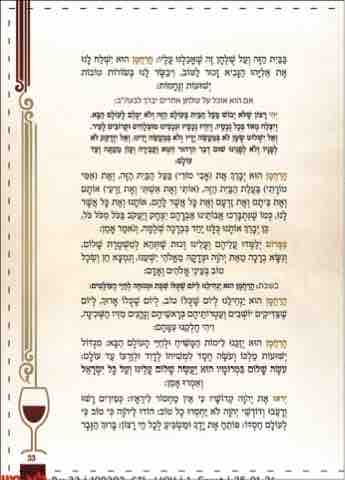 בַּבַּיִת הַזֶּה וְעַל שֻׁלְחָן זֶה שֶׁאָכַלְנוּ עָלָיו: הָרַחֲמָן הוּא יִשְׁלַח לָנוּ
אֶת אֵלִיָּהוּ הַנָּבִיא זָכוּר לַטּוֹב, וִיבַשֶּׂר לָנוּ בְּשׂוֹרוֹת טוֹבוֹת
יְשׁוּעוֹת וְנֶחָמוֹת:
אם הוא אוכל על שלחן אחרים יברך לבעה"ב:
יְהִי רָצוֹן שֶׁלֹּא יֵבוֹשׁ בַּעַל הַבַּיִת בָּעוֹלָם הַזֶּה וְלֹא יִכָּלֵם לָעוֹלָם הַבָּא.
וְיִצְלַח מְאֹד בְּכָל נְכָסָיו, וְיִהְיוּ נְכָסָיו וּנְכָסֵינוּ מוּצְלָחִים וּקְרוֹבִים לָעִיר.
וְאַל יִשְׁלוֹט שָׂטָן לֹא בְּמַעֲשֵׂה יָדָיו וְלֹא בְּמַעֲשֵׂה יָדֵינוּ. וְאַל יִזְדַּקֵּק לֹא
לְפָנָיו וְלֹא לְפָנֵינוּ שׁוּם דְּבַר הִרְהוּר חֵטְא וַעֲבֵירָה וְעָוֹן מֵעַתָּה וְעַד
עוֹלָם:
הָרַחֲמָן הוּא יְבָרֵךְ אֶת (אָבִי מוֹרִי) בַּעַל הַבַּיִת הַזֶּה, וְאֶת (אִמִּי
מוֹרָתִי) בַּעֲלַת הַבַּיִת הַזֶּה, (אוֹתִי וְאֶת אִשְׁתִּי וְאֶת זַרְעִי) אוֹתָם
וְאֶת בֵּיתָם וְאֶת זַרְעָם וְאֶת כָּל אֲשֶׁר לָהֶם, אוֹתָנוּ וְאֶת כָּל אֲשֶׁר
לָנוּ, כְּמוֹ שֶׁנִּתְבָּרְכוּ אֲבוֹתֵינוּ אַבְרָהָם יִצְחָק וְיַעֲקֹב בַּכֹּל מִכֹּל כֹּל,
כֵּן יְבָרֵךְ אוֹתָנוּ כֻּלָּנוּ יַחַד בִּבְרָכָה שְׁלֵמָה, וְנֹאמַר אָמֵן:
בַּמָּרוֹם יְלַמְּדוּ עֲלֵיהֶם וְעָלֵינוּ זְכוּת שֶׁתְּהֵא לְמִשְׁמֶרֶת שָׁלוֹם,
וְנִשָּׂא בְרָכָה מֵאֵת יְהֹוָה וּצְדָקָה מֵאֱלֹהֵי יִשְׁעֵנוּ, וְנִמְצָא חֵן וְשֵׂכֶל
טוֹב בְּעֵינֵי אֱלֹהִים וְאָדָם:
בשבת: הָרַחֲמָן הוּא יַנְחִילֵנוּ לְיוֹם שֶׁכֻּלּוֹ שַׁבָּת וּמְנוּחָה לְחַיֵּי הָעוֹלָמִים:
הָרַחֲמָן הוּא יַנְחִילֵנוּ לְיוֹם שֶׁכֻּלּוֹ טוֹב, לְיוֹם שֶׁכֻּלּוֹ אָרוּךְ, לְיוֹם
שֶׁצַּדִּיקִים יוֹשְׁבִים וְעַטְרוֹתֵיהֶם בְּרָאשֵׁיהֶם וְנֶהֱנִים מִזִּיו הַשְּׁכִינָה,
וִיהִי חֶלְקֵנוּ עִמָּהֶם:
הָרַחֲמָן הוּא יְזַכֵּנוּ לִימוֹת הַמָּשִׁיחַ וּלְחַיֵּי הָעוֹלָם הַבָּא: מִגְדּוֹל
יְשׁוּעוֹת מַלְכּוֹ וְעֹשֶׂה חֶסֶד לִמְשִׁיחוֹ לְדָוִד וּלְזַרְעוֹ עַד עוֹלָם:
עֹשֶׂה שָׁלוֹם בִּמְרוֹמָיו הוּא יַעֲשֶׂה שָׁלוֹם עָלֵינוּ וְעַל כָּל יִשְׂרָאֵל
וְאִמְרוּ אָמֵן:
יִראוּ אֶת יְהֹוָה קְדוֹשָׁיו כִּי אֵין מַחְסוֹר לִירֵאָיו: כְּפִירִים רָשׁוּ
וְרָעֵבוּ וְדוֹרְשֵׁי יְהֹוָה לֹא יַחְסְרוּ כָל טוֹב: הוֹדוּ לַיהֹוָה כִּי טוֹב כִּי
לְעוֹלָם חַסְדּוֹ: פּוֹתֵחַ אֶת יָדֶךָ וּמַשְׂבִּיעַ לְכָל חַי רָצוֹן: בָּרוּךְ הַגֶּבֶר
33